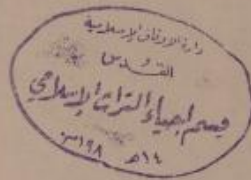 دائرة الأوقاف الإسلامية
القدس
قسم إحياء التراث الإسلامي
١٤ هـ ١٩٨ م